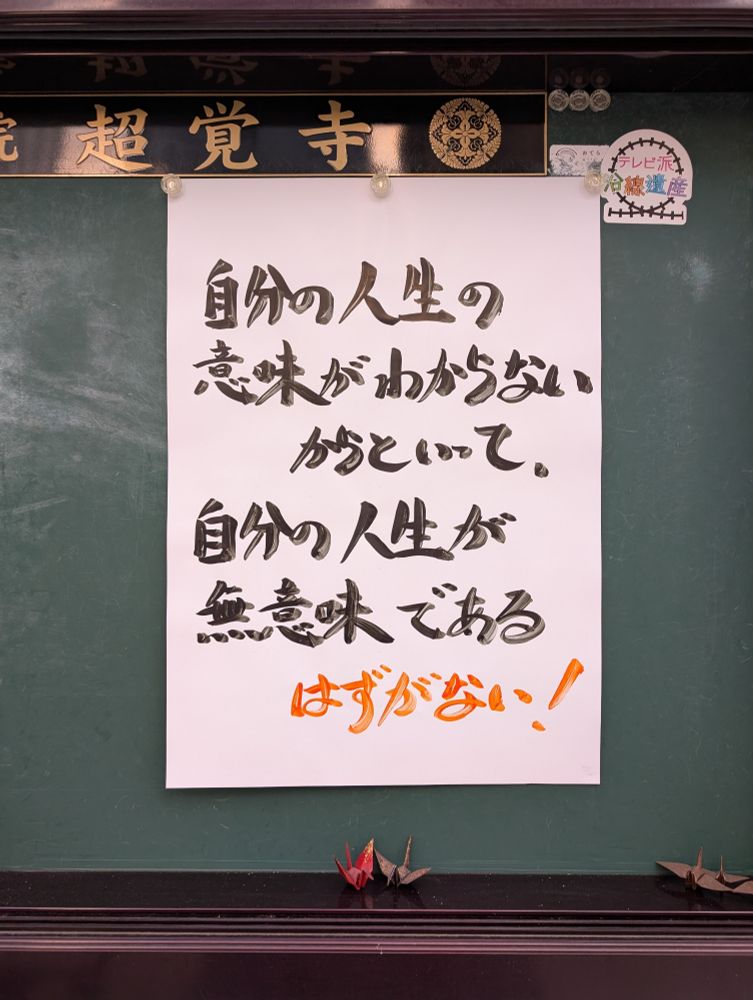 超覚寺
テレビ派
沿線遺産
自分の人生の
意味がわからない
からといって、
自分の人生が
無意味である
はずがない！